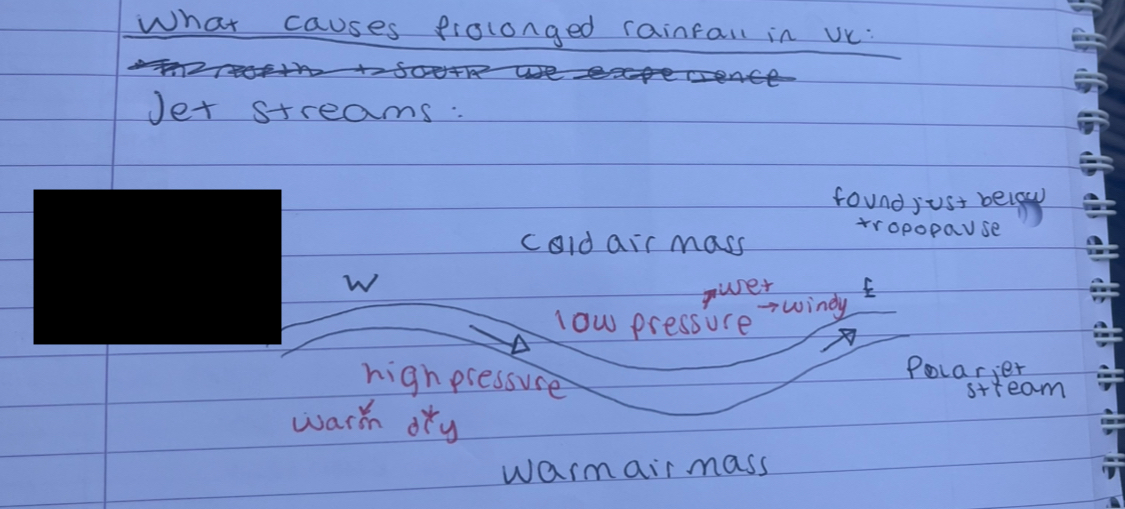 What causes prolonged rainfall in UK:
Jet streams:
found just below
tropopause
cold air mass
W
wet
E
low pressure → windy
high pressure
Polar jet
stream
warm dry
warm air mass